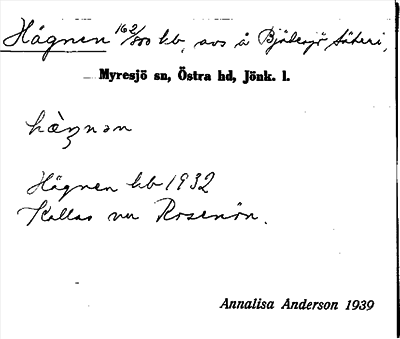 Hågnen 162/800 hb, avs å Bjäbersjö Säteri,
Myresjö sn, Östra hd, Jönk. l.
Hägnen hb 1932
Kallas nu Rosenön.
Annalisa Anderson 1939